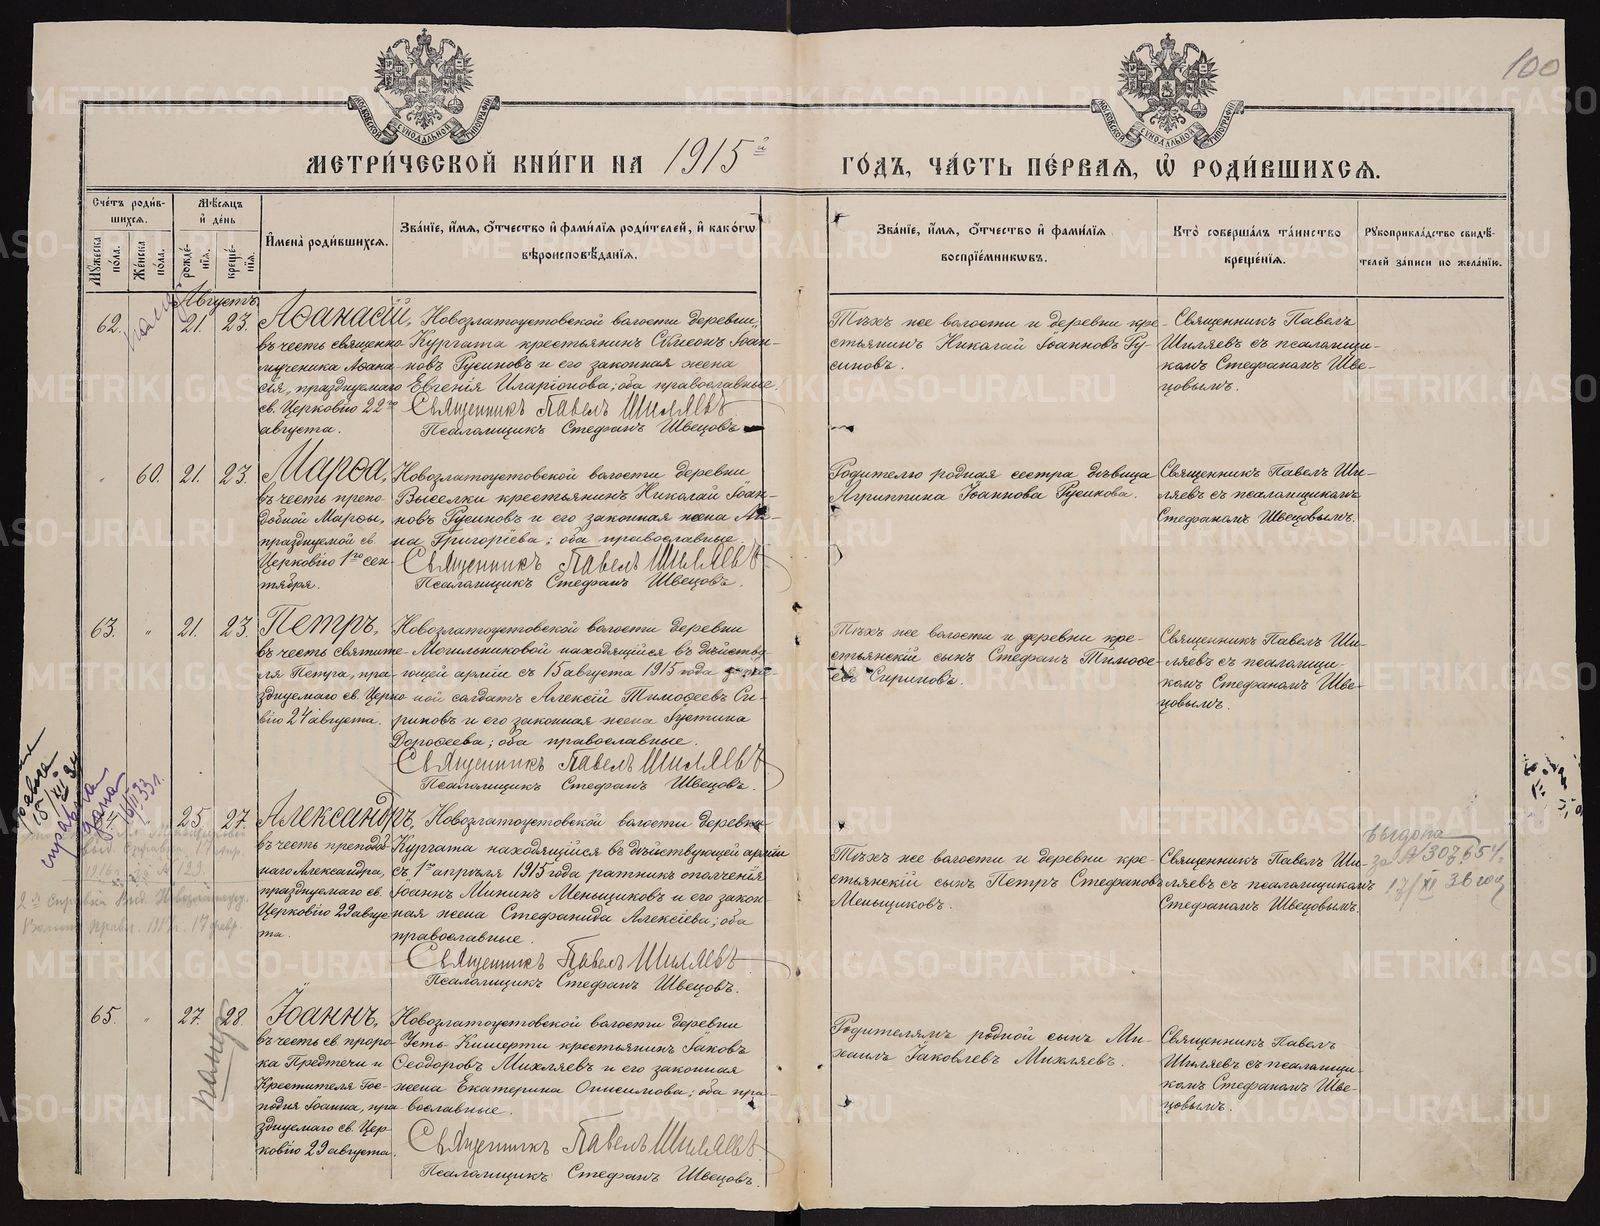 100
МЕТРИ́ЧЕСКОЙ КНИ́ГИ НА 1915й ГО́ДЪ, ЧА́СТЬ ПЕ́РВАѦ, Ѡ РОДИ́ВШИХСѦ.
Сче́тъ роди́в-
шихся.
Мѣ́сяцъ
и де́нь
Му́жеска по́ла.
Же́нска по́ла.
рожде́-
нія.
креще́-
нія.
Имена̀ роди́вшихся.
Зва́ніе, и́мя, о́тчество и фами́лія роди́телей, и како́гѡ
вѣроисповѣ́данія.
Зва́ніе, и́мя, о́тчество и фами́лія
воспріе́мникѡвъ.
Кто̀ соверша́лъ та́инство
креще́нія.
Рукоприкла́дство свидѣ́-
телей за́писи по жела́нію.
Августъ
62. 21. 23.
Аѳанасій,
въ честь священно-
мученика Аѳана-
сія, празднуемаго
св. Церковію 22го
августа.
Новозлатоустовской волости деревни
Кургата крестьянинъ Сѵмеонъ Іоан-
новъ Русиновъ и его законная жена
Евгенія Иларіонова; оба православные.
Священникъ Павелъ Шиляевъ
Псаломщикъ Стефанъ Швецовъ
Тѣхъ же волости и деревни кре-
стьянинъ Николай Іоанновъ Ру-
синовъ.
Священникъ Павелъ
Шиляевъ съ псаломщи-
комъ Стефаномъ Шве-
цовымъ.
" 60. 21. 23.
Марѳа,
въ честь препо-
добной Марѳы,
празднуемой св.
Церковію 1го сен-
тября.
Новозлатоустовской волости деревни
Выселки крестьянинъ Николай Іоан-
новъ Русиновъ и его законная жена Ан-
на Григоріева; оба православные.
Священникъ Павелъ Шиляевъ
Псаломщикъ Стефанъ Швецовъ.
Родителю родная сестра дѣвица
Агриппина Іоаннова Русинова.
Священникъ Павелъ Ши-
ляевъ съ псаломщикомъ
Стефаномъ Швецовымъ.
63. " 21. 23.
Петръ,
въ честь святите-
ля Петра, пра-
зднуемаго св. Церко-
вію 24 августа.
Новозлатоустовской волости деревни
Могильниковой находящійся въ дѣйству-
ющей арміи съ 15 августа 1915 года
солдатъ Алексій Тимоѳеевъ Си-
риновъ и его законная жена Іустина
Дороѳеева; оба православные.
Священникъ Павелъ Шиляевъ
Псаломщикъ Стефанъ Швецовъ.
Тѣхъ же волости и деревни кре-
стьянскій сынъ Стефанъ Тимоѳе-
евъ Сириновъ.
Священникъ Павелъ Ши-
ляевъ съ псаломщи-
комъ Стефаномъ Шве-
цовымъ.
справка
дана
25. 27.
Александръ,
въ честь преподоб-
наго Александра,
празднуемаго св.
Церковію 29 авгус-
та.
Новозлатоустовской волости деревни
Кургата находящійся въ дѣйствующей арміи
съ 1го апрѣля 1915 года ратникъ ополченія
Іоаннъ Мининъ Меньщиковъ и его закон-
ная жена Стефанида Алексіева; оба
православные.
Священникъ Павелъ Шиляевъ
Псаломщикъ Стефанъ Швецовъ.
Тѣхъ же волости и деревни кре-
стьянскій сынъ Петръ Стефановъ
Меньщиковъ.
Священникъ Павелъ Ши-
ляевъ съ псаломщикомъ
Стефаномъ Швецовымъ.
17/XI 36 год
65. " 27. 28.
Іоаннъ,
въ честь св. проро-
ка Предтечи и
Крестителя Гос-
подня Іоанна, пра-
зднуемаго св. Цер-
ковію 29 августа.
Новозлатоустовской волости деревни
Усть Кишерти крестьянинъ Іаковъ
Ѳеодоровъ Михляевъ и его законная
жена Екатерина Онисимова; оба пра-
вославные.
Священникъ Павелъ Шиляевъ
Псаломщикъ Стефанъ Швецовъ.
Родителямъ родной сынъ Ми-
хаилъ Іаковлевъ Михляевъ.
Священникъ Павелъ
Шиляевъ съ псаломщи-
комъ Стефаномъ Шве-
цовымъ.
METRIKI.GASO-URAL.RU